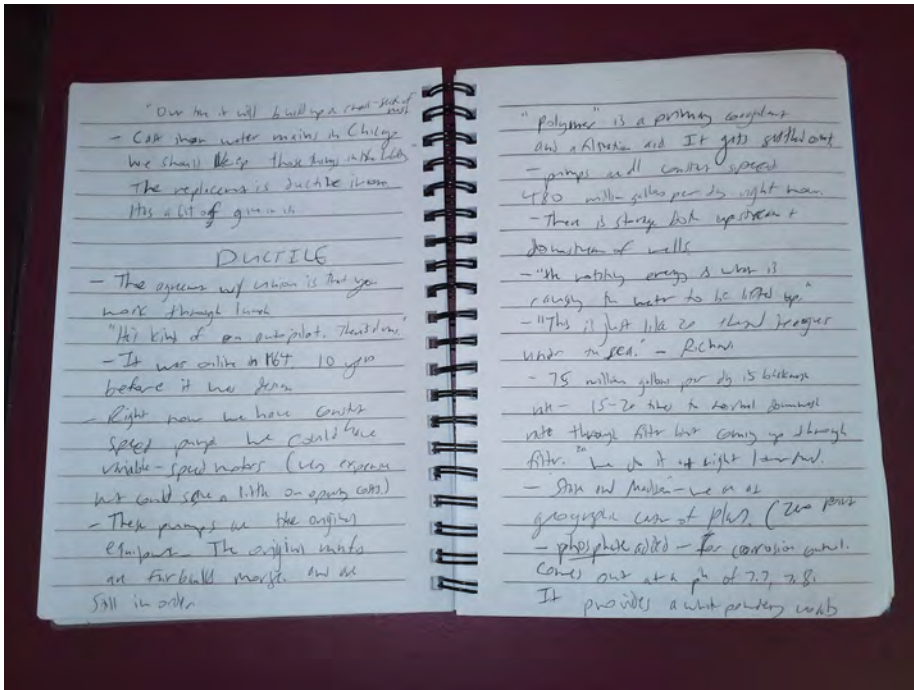 "Over time it will build up a of rust
- Cast iron water mains in Chicago
We should keep those things in the
The replacement is ductile iron
Has a bit of give in it
DUCTILE
- The agreement w/ union is that you
work through lunch
"It's kind of on autopilot.
- It was online in 1964. 10 years
before it was design
- Right now we have constant
speed pump we could have
variable-speed motors (very expensive
but could save a little on operating costs.)
- These pumps are the original
equipment. The original
are Fairbanks Morse and are
still in order
"Polymer" is a primary coagulant
and a filtration aid It gets
- pumps are all constant speed
480 million gallons per day right now.
- There is storage both upstream +
downstream of wells.
- "the rotating energy is what is
causing the water to be lifted up."
- "This is just like 20 thousand leagues
under the sea." - Richard
- 75 million gallons per day is backwash
rate - 15-20 times the normal downwash
rate through filter but coming up through
filter. we do it at night
- State and Madison - we are at
geographic center of plans. (Zero point
- phosphate added - for corrosion control.
Comes out at a ph of 7.7, 7.8.
It provides a white powdery